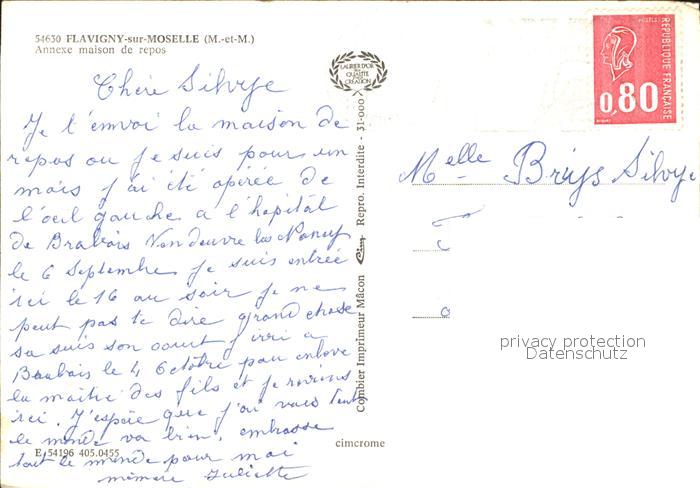 54630 FLAVIGNY-sur-MOSELLE (M.-et-M.)
Annexe maison de repos
Chère Silvye
Je t'envoi la maison de
repos ou je suis pour un
mois j'ai été opérée de
l'oeil gauche a l'hopital
de Brabois Vandeuvre les Nancy
le 6 Septembre je suis entrée
ici le 16 au soir je ne
peut pas te dire grand chose
sa suis son court j'irai a
Brabois le 4 Octobre pour enlové
la moitié des fils et je reviens
ici. J'espère que j'ai vous tout
le monde va bien, embrasse
tout le monde pour moi
mémère Juliette
E 54196 405.0455
LAURIER D'OR
DE LA
QUALITÉ
CRÉATION
Combier Imprimeur Mâcon Cim Repro. Interdite - 31-000
cimcrome
POSTES
RÉPUBLIQUE FRANÇAISE
0,80
BEQUET
Melle Brijs Silvye
privacy protection
Datenschutz